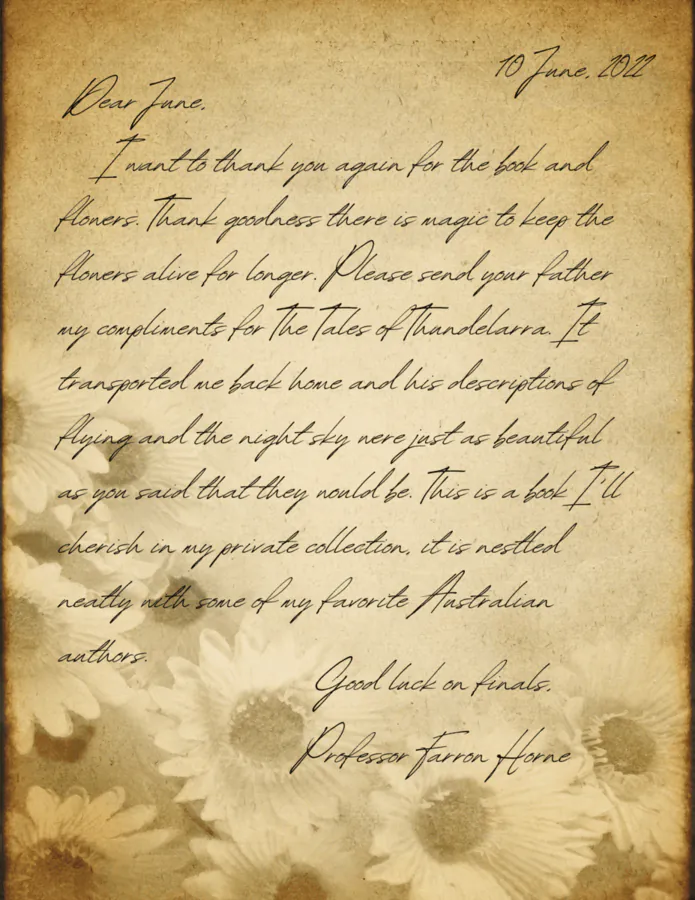 10 June, 2022
Dear June,
I want to thank you again for the book and
flowers. Thank goodness there is magic to keep the
flowers alive for longer. Please send your father
my compliments for The Tales of Thundelarra. It
transported me back home and his descriptions of
flying and the night sky were just as beautiful
as you said that they would be. This is a book I'll
cherish in my private collection, it is nestled
neatly with some of my favorite Australian
authors.
Good luck on finals,
Professor Farron Horne